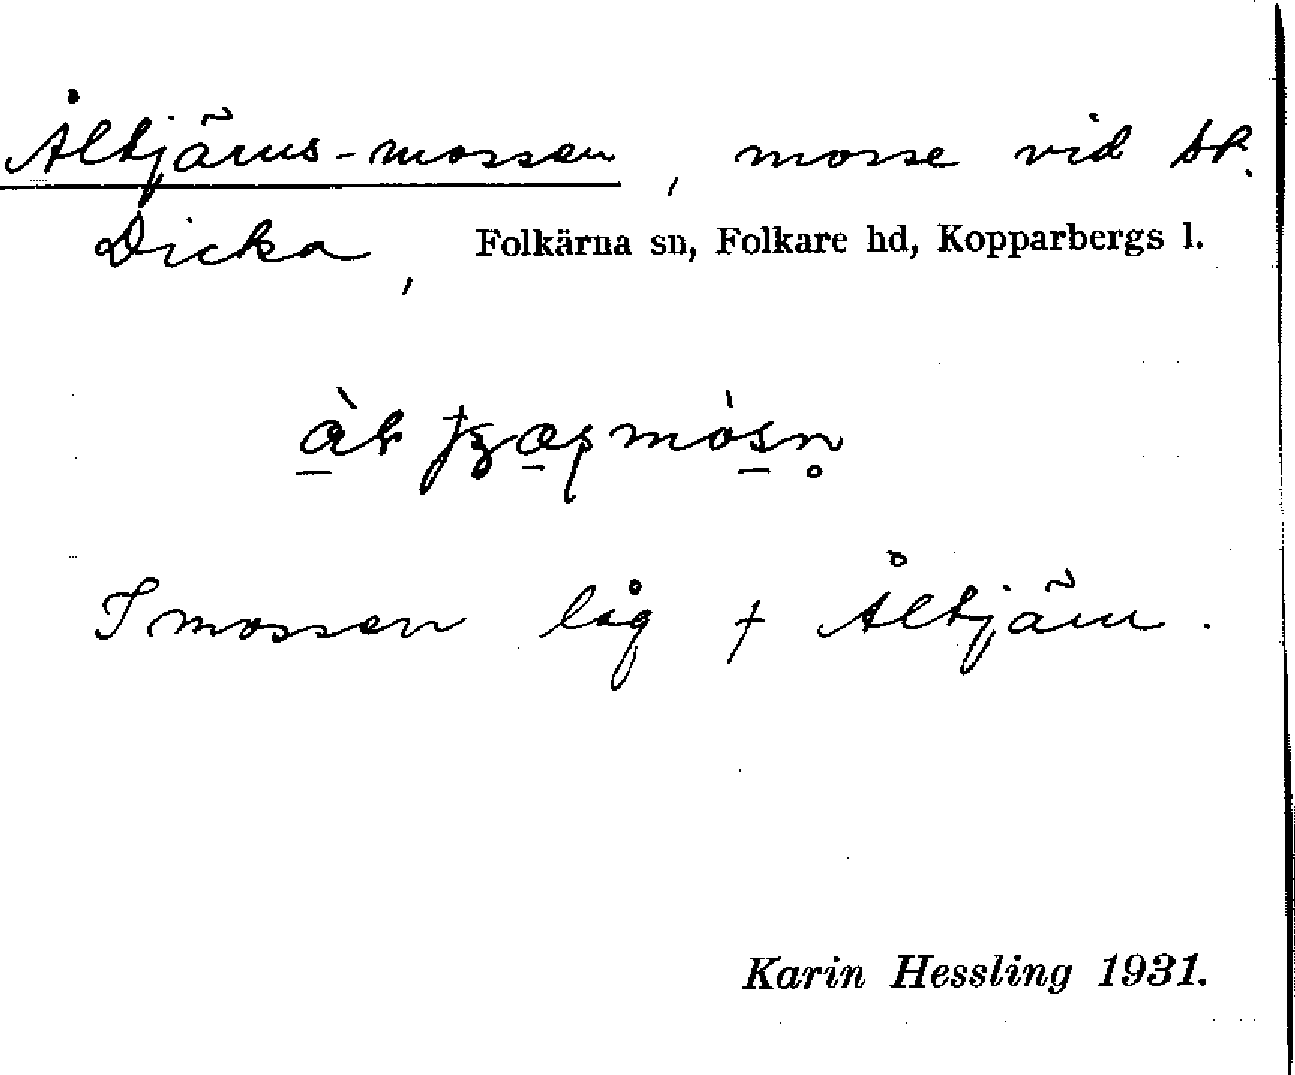 Åltjärns-mossen, mosse vid bl.
Dicka, Folkärna sn, Folkare hd, Kopparbergs l.
I mossen låg † Åltjärn.
Karin Hessling 1931.